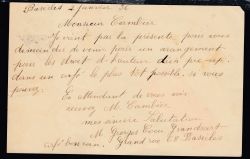 Baseles 2 janvier 36
Monsieur Cambier
Je vient par la présente pour vous
demander de venir pour un arrangement
pour les droit d'auteur d'un pic up
dans un café le plus tot possible, si vous
pouvez.
En attendant de vous voir
recevez M. Cambier
mes sincère Salutation
M Georges
café Grand rue 68 Baseles